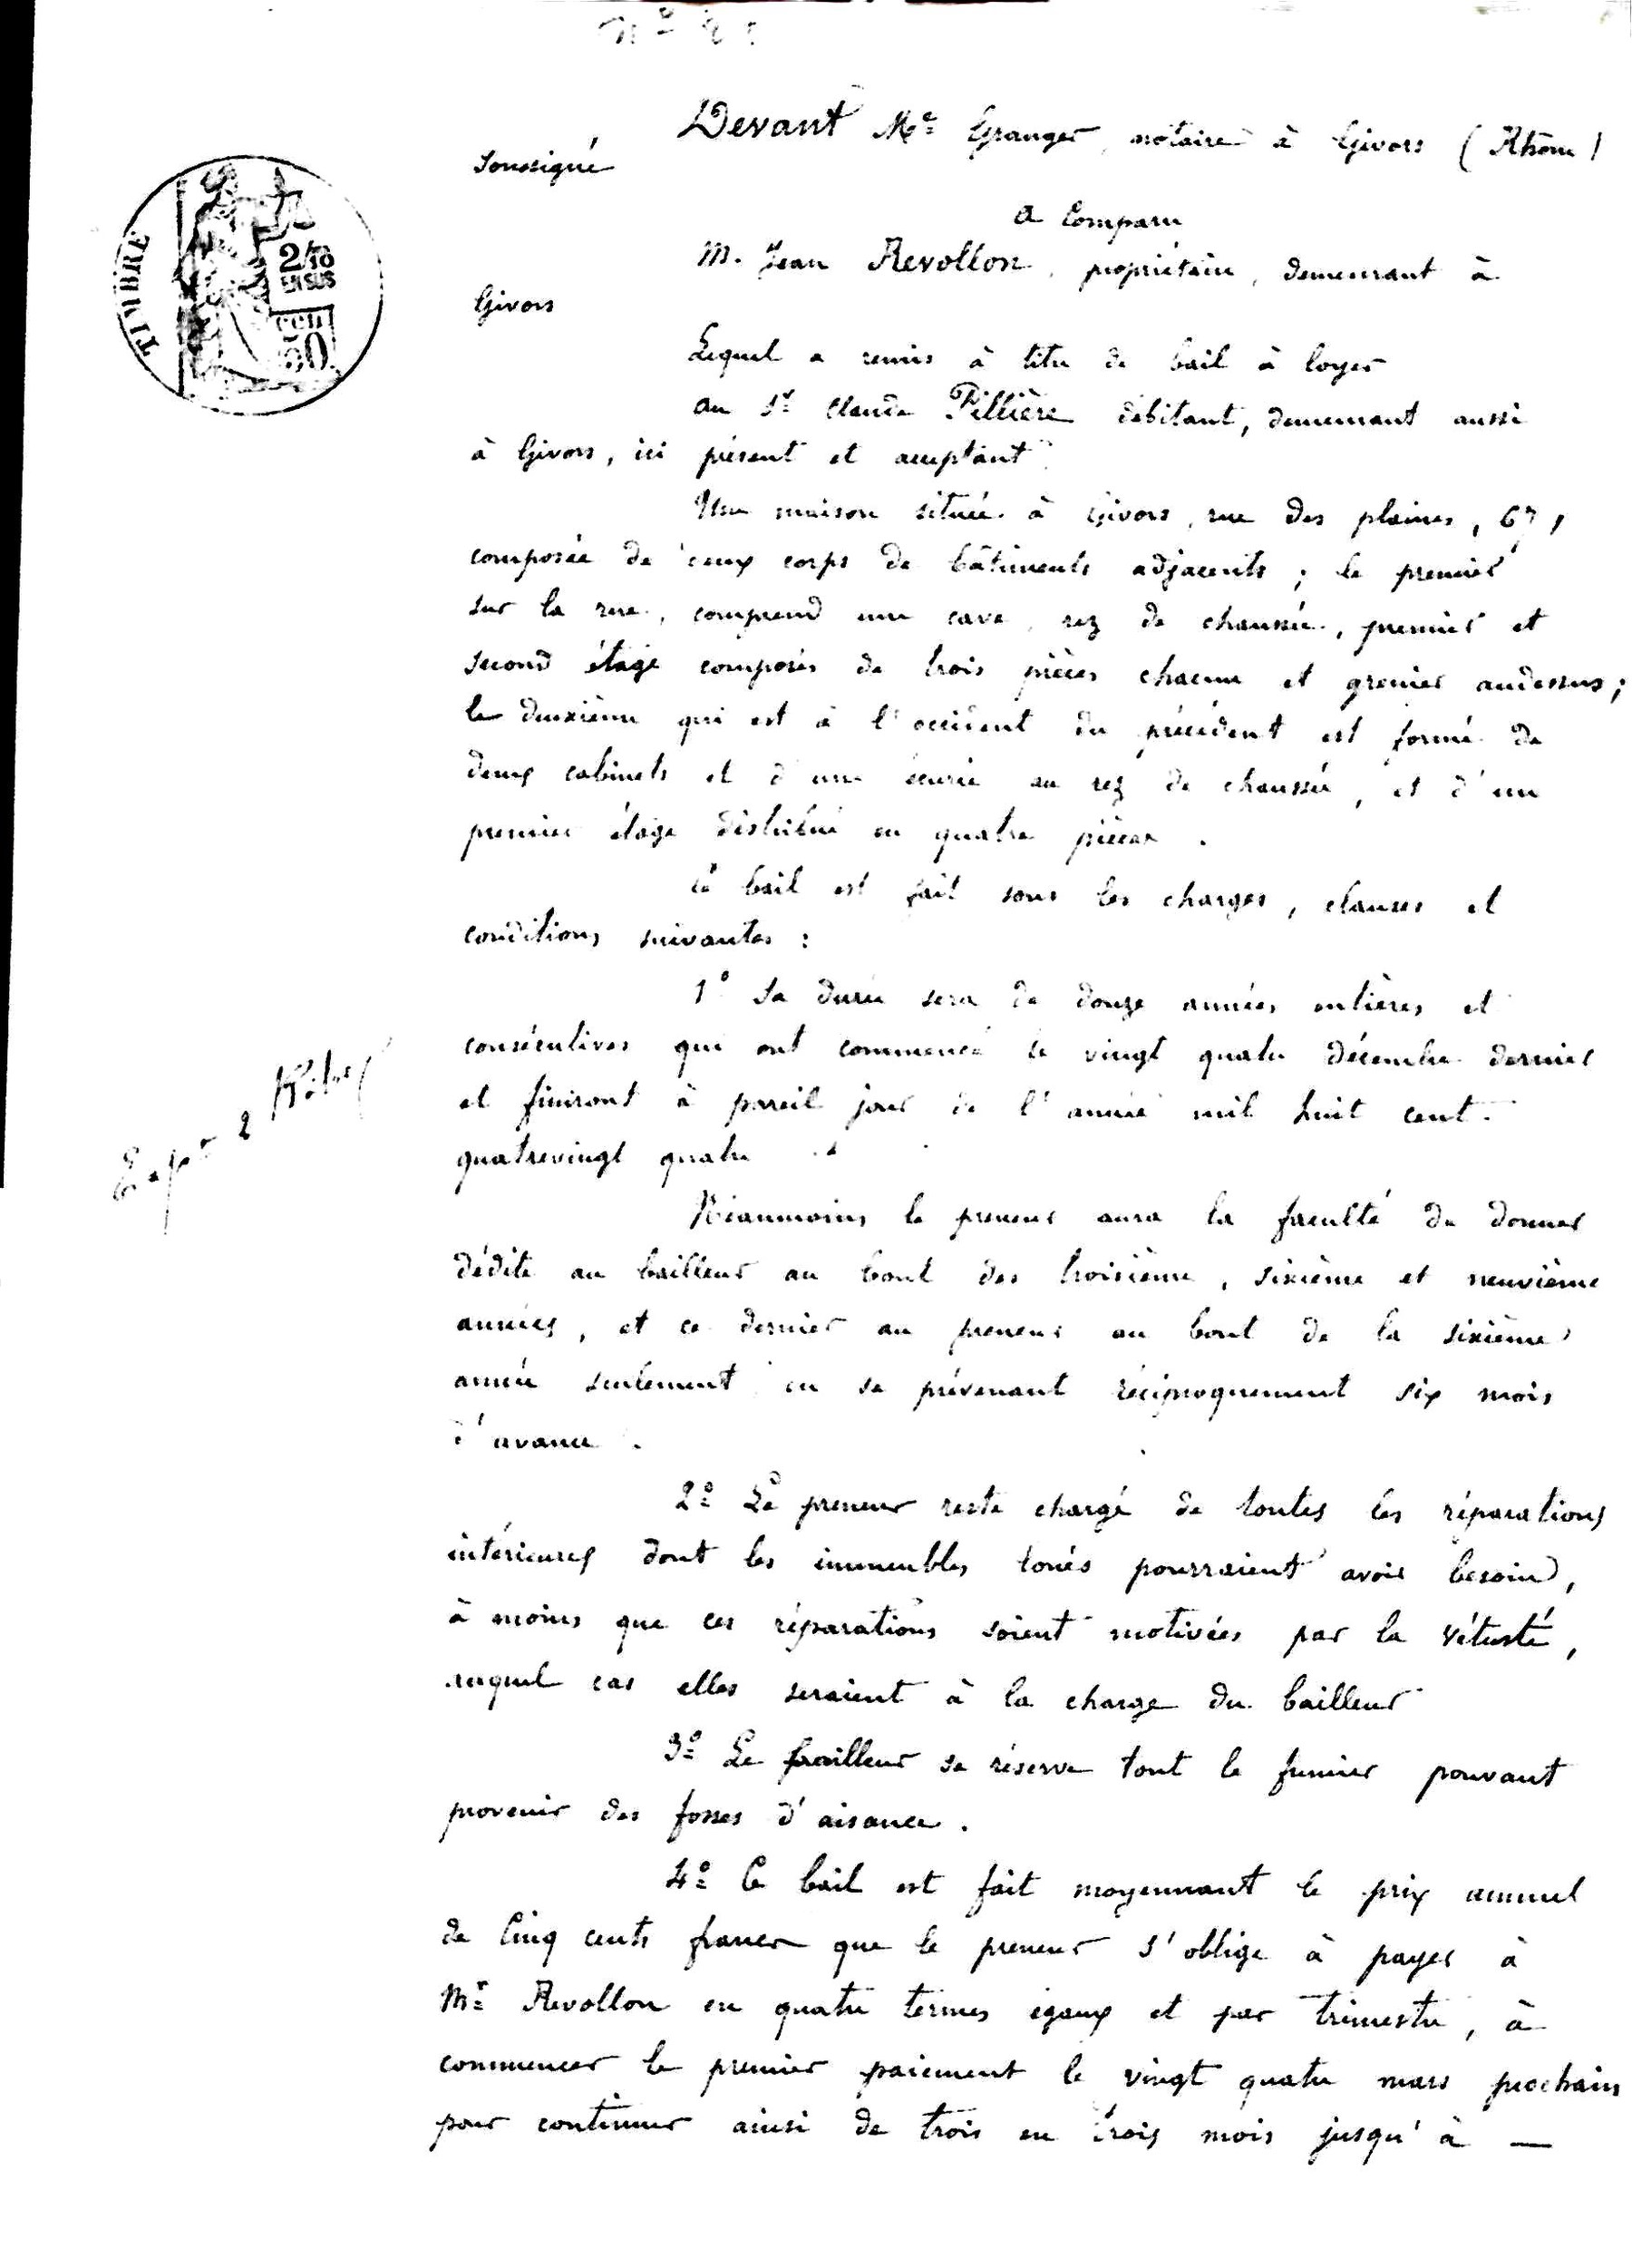 Devant Me Granger, notaire à Givors (Rhône)
soussigné
a comparu
M. Jean Revollon, propriétaire, demeurant à
Givors
Lequel a remis à titre de bail à loyer
au Sr Claude Pillière débitant, demeurant aussi
à Givors, ici présent et acceptant
Une maison située à Givors, rue des plaines, 67,
composée de deux corps de bâtiments adjacents ; le premier
sur la rue, comprend une cave, rez de chaussée, premier et
second étage composés de trois pièces chacun et grenier audessus ;
le deuxième qui est à l'occident du précédent est formé de
deux cabinets et d'une écurie au rez de chaussée, et d'un
premier étage distribué en quatre pièces.
Ce bail est fait sous les charges, clauses et
conditions suivantes :
1° Sa durée sera de douze années entières et
consécutives qui ont commencé le vingt quatre décembre dernier
et finiront à pareil jour de l'année mil huit cent
quatrevingt quatre
Néanmoins le preneur aura la faculté de donner
dédite au bailleur au bout des troisième, sixième et neuvième
années, et ce dernier au preneur au bout de la sixième
année seulement en se prévenant réciproquement six mois
d'avance.
2° Le preneur reste chargé de toutes les réparations
intérieures dont les immeubles loués pourraient avoir besoin,
à moins que ces réparations soient motivées par la vétusté,
auquel cas elles seraient à la charge du bailleur
3° Le bailleur se réserve tout le fumier pouvant
provenir des fosses d'aisance.
4° Ce bail est fait moyennant le prix annuel
de Cinq cents francs que le preneur s'oblige à payer à
Mr Revollon en quatre termes égaux et par trimestre, à
commencer le premier paiement le vingt quatre mars prochain
pour continuer ainsi de trois en trois mois jusqu'à —
TIMBRE
2/10
EN SUS
50